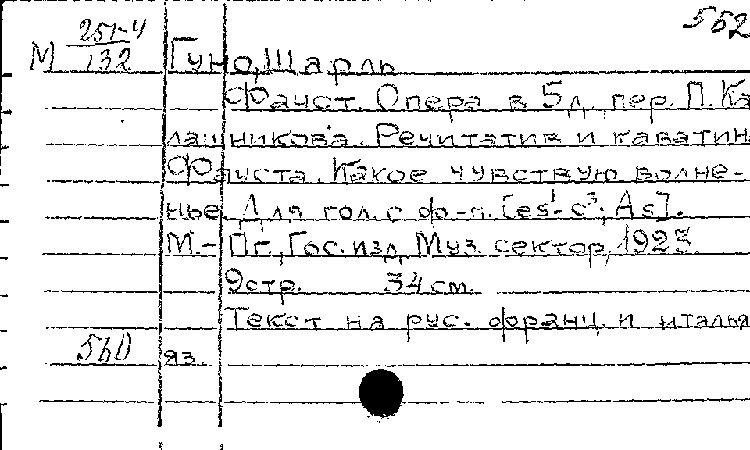 552
М 251-4
132 Гуно, Шарль
Фауст. Опера в 5 д. пер. П. Ка
лашникова. Речитатив и каватин
Фауста. Какое чувствую волне-
нье. Для гол. с ф-п. [es¹-c³; As].
М.-Пг., Гос. изд. Муз. сектор, 1923.
9 стр. 34 см.
Текст на рус. франц. и италья
560 яз.